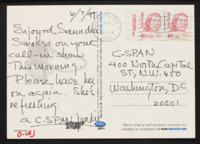 Enjoyed Saundra
Smokes on your
call-in show
This morning.
Please have her
on again. She's
refreshing.
a C-SPAN
C-SPAN
400 North Capital
ST, N.W. 650
Washington, D.C.
20001